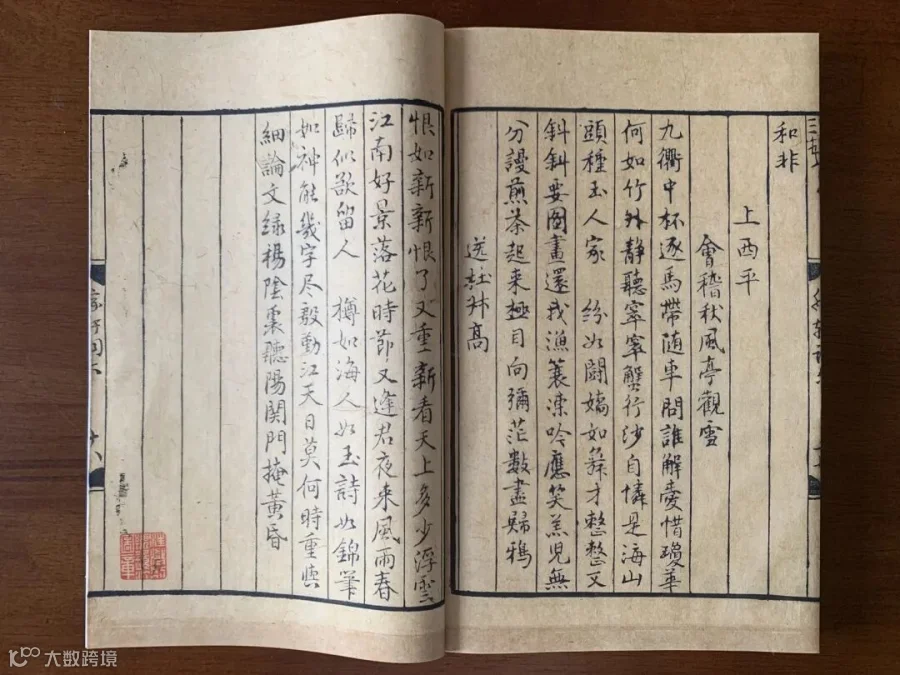 和非
上西平
會稽秋風亭觀雪
九衢中杯逐馬帶随車問誰解愛惜瓊華
何如竹外静聽窣窣蟹行沙自憐是海山
頭種玉人家　紛如鬪嬌如舞才整整又
斜斜要圖畫還我漁蓑凍吟應笑羔兒無
分謾煎茶起来極目向彌茫數盡歸鴉
送杜叔高
恨如新新恨了又重新看天上多少浮雲
江南好景落花時節又逢君夜来風雨春
歸似欲留人　樽如海人如玉詩如錦筆
如神能幾字尽殷勤江天日莫何時重與
細論文緑楊陰裏聽陽関門掩黄昏
大数跨境